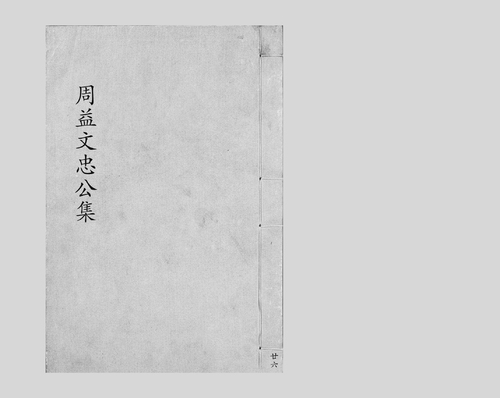 周益文忠公集
廿六